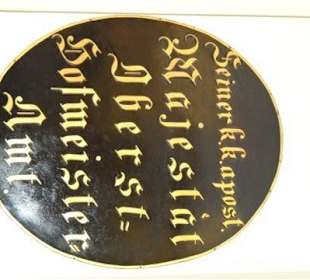 Seiner k. k. apost.
Majestät
Oberst=
Hofmeister=
Amt.